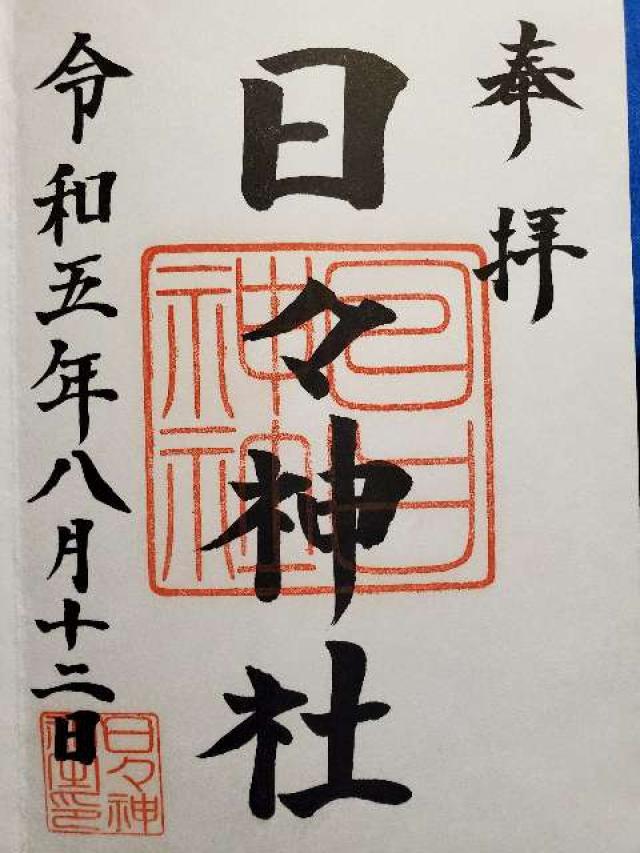 奉拝
日々神社
令和五年八月十二日
日日神社